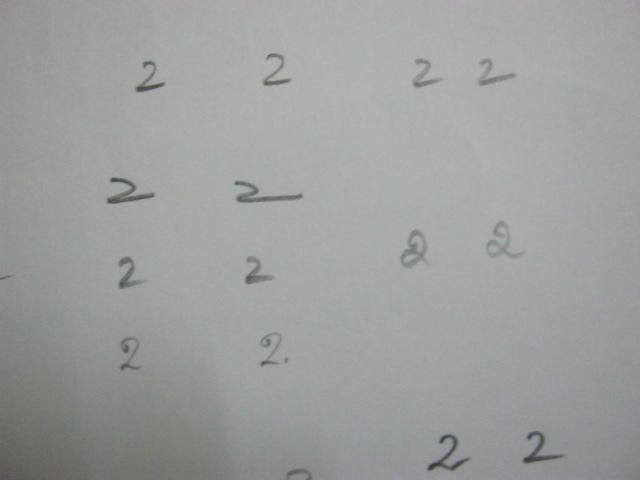 2 2 2 2
2 2
2 2 2 2
2 2.
2 2